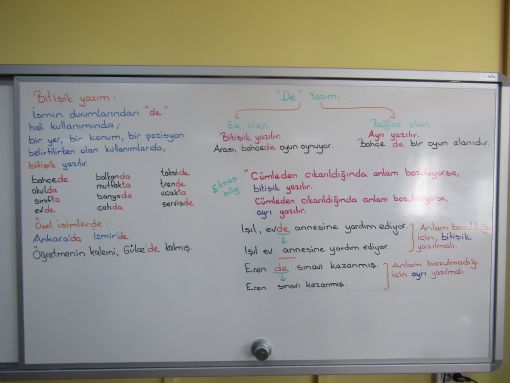 Bitişik yazım:
İsmin durumlarından "de"
hali kullanımında;
bir yer, bir konum, bir pozisyon
belirtilirken olan kullanımlarda,
bitişik yazılır.
bahçede balkonda takside
okulda mutfakta trende
sınıfta banyoda uçakta
evde çatıda serviste
Özel isimlerde:
Ankara'da İzmir'de
Öğretmenin kalemi, Gülce'de kalmış.
"De" Yazımı
Ek olan
Bitişik yazılır.
Arası, bahçede oyun oynuyor.
Bağlaç olan
Ayrı yazılır.
Bahçe de bir oyun alanıdır.
Elmas bilgi
"Cümleden çıkarıldığında anlam bozuluyorsa,
bitişik yazılır.
Cümleden çıkarıldığında anlam bozulmuyorsa,
ayrı yazılır.
Işıl, evde annesine yardım ediyor.
Işıl ev annesine yardım ediyor.
Anlam bozulduğu
için, bitişik
yazılmalı.
Eren de sınavı kazanmış.
Eren sınavı kazanmış.
Anlam bozulmadığı
için ayrı yazılmalı